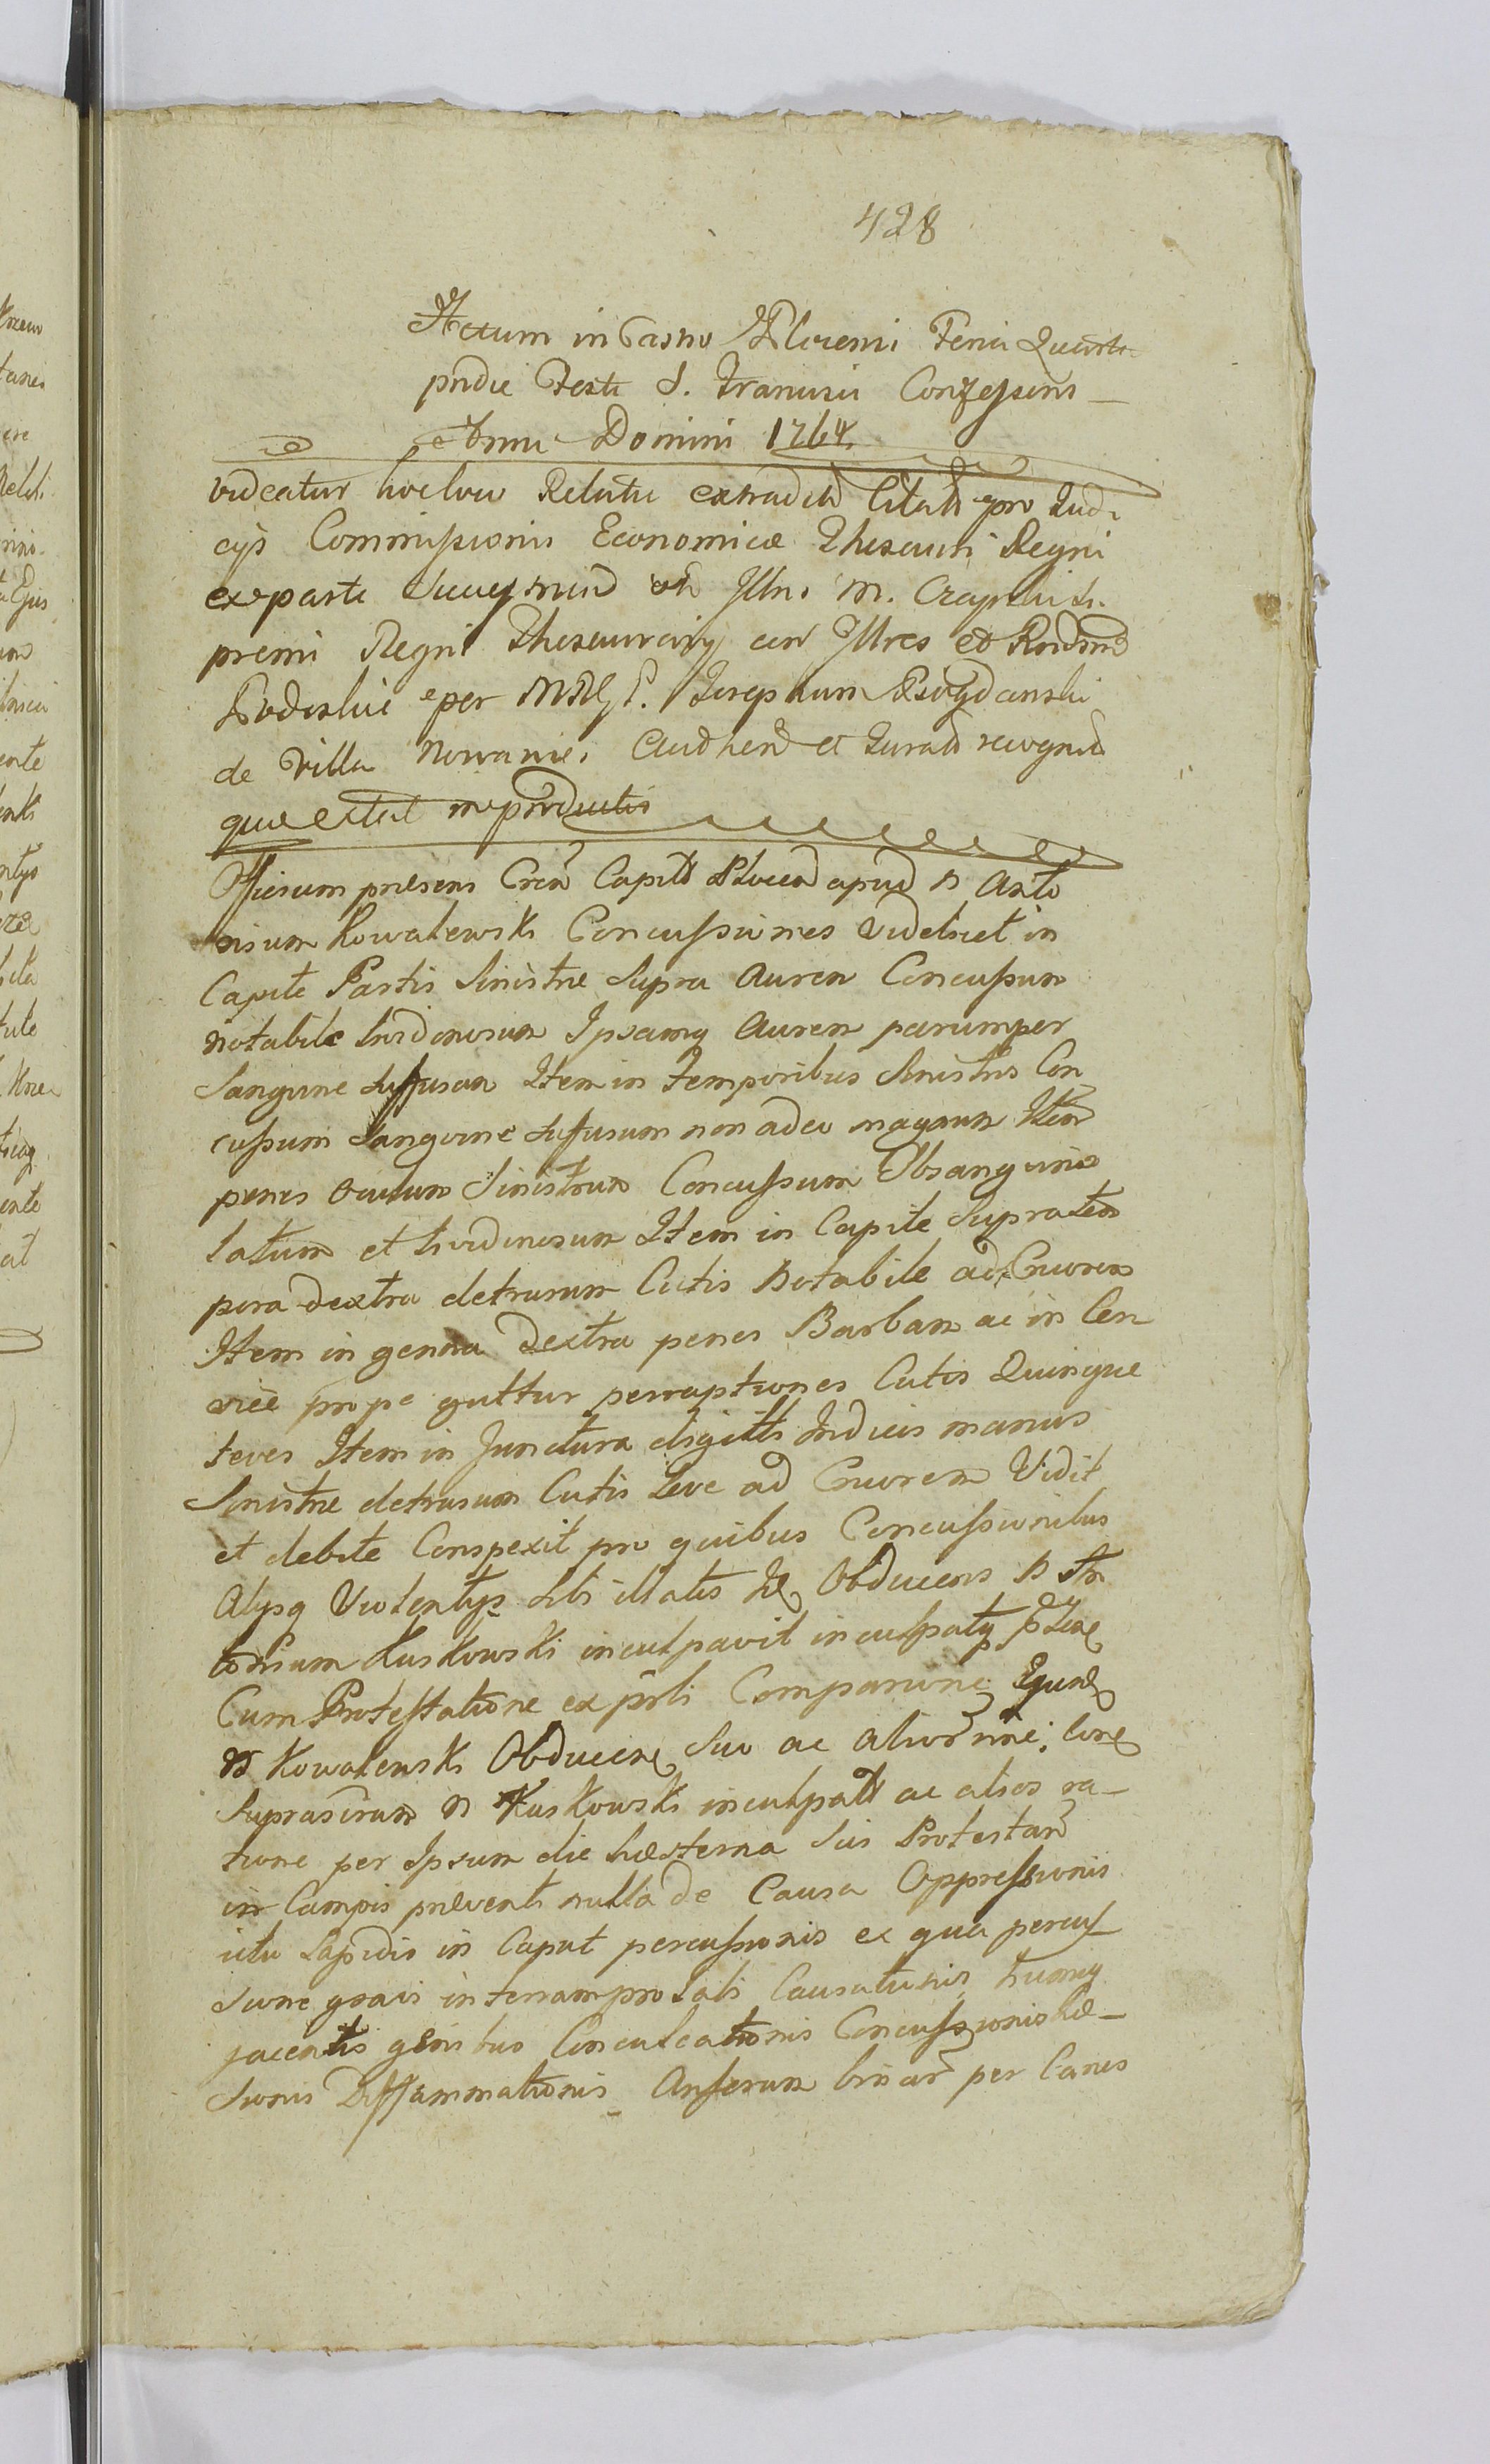 428
Actum in Castro Plocensi Feria Quarta
pridie Festi S. Francisci Confessoris
Anno Domini 1764.
videatur hocloco Relatio extradit Citatis pro Judi
cijs Commissionis Economicæ Thesauri Regni
ex parte Illri M.
premi Regni Thesaurarij Illres et
Podoskie per Josephum Bogdanski
de Villa Nowawie, et Jurati recognit
quæ in productis
Officium præsens Cren Capitl Plocen apud N Anto
nium Kowalewski Concussiones videlicet in
Capite Partis Sinistræ Supra Aurem Concussum
notabile livdonosum Ipsamq Aurem parumper
Sanguine suffusam Item in temporibus Sinistris Con
cussum Sanguine suffusum non adeo magnum Item
penes oculum Sinistrum Concussum Obsanguino
latum et livdonosum Item in Capite Supra tem
pora dextra detrusum Cutis Notabile ad Cruorem
Item in genna dextra penes Barbam ac in Cer
vice prope guttur serraptiones Cutis Quinque
leves Item in Junctura digitti Indicis manus
Sinistræ detrusum Cutis Leve ad Cruorem Vidit
et debite Conspexit pro quibus Concussionibus
Alijsq Violentijs Sibi illatis Id Obducens N An
tonium Kuskowski inculpavit
Cum Protestatione ex
N Kowalewski Obducen Suo ac alior nne;
Suprascrum N Kuskowski inculpatt ac alios ra-
tione per Ipsum die hesterna Sui Protestan
in Campis præventi nulla de Causa Oppressionis
ictu Lapidis in Caput percussionis ex qua percus
sione gravis in terram prolabi Causationis tuncq
jacentis genibus Conculcationis Concussionis læ-
sionis Diffammationis Anserum binar per Canes